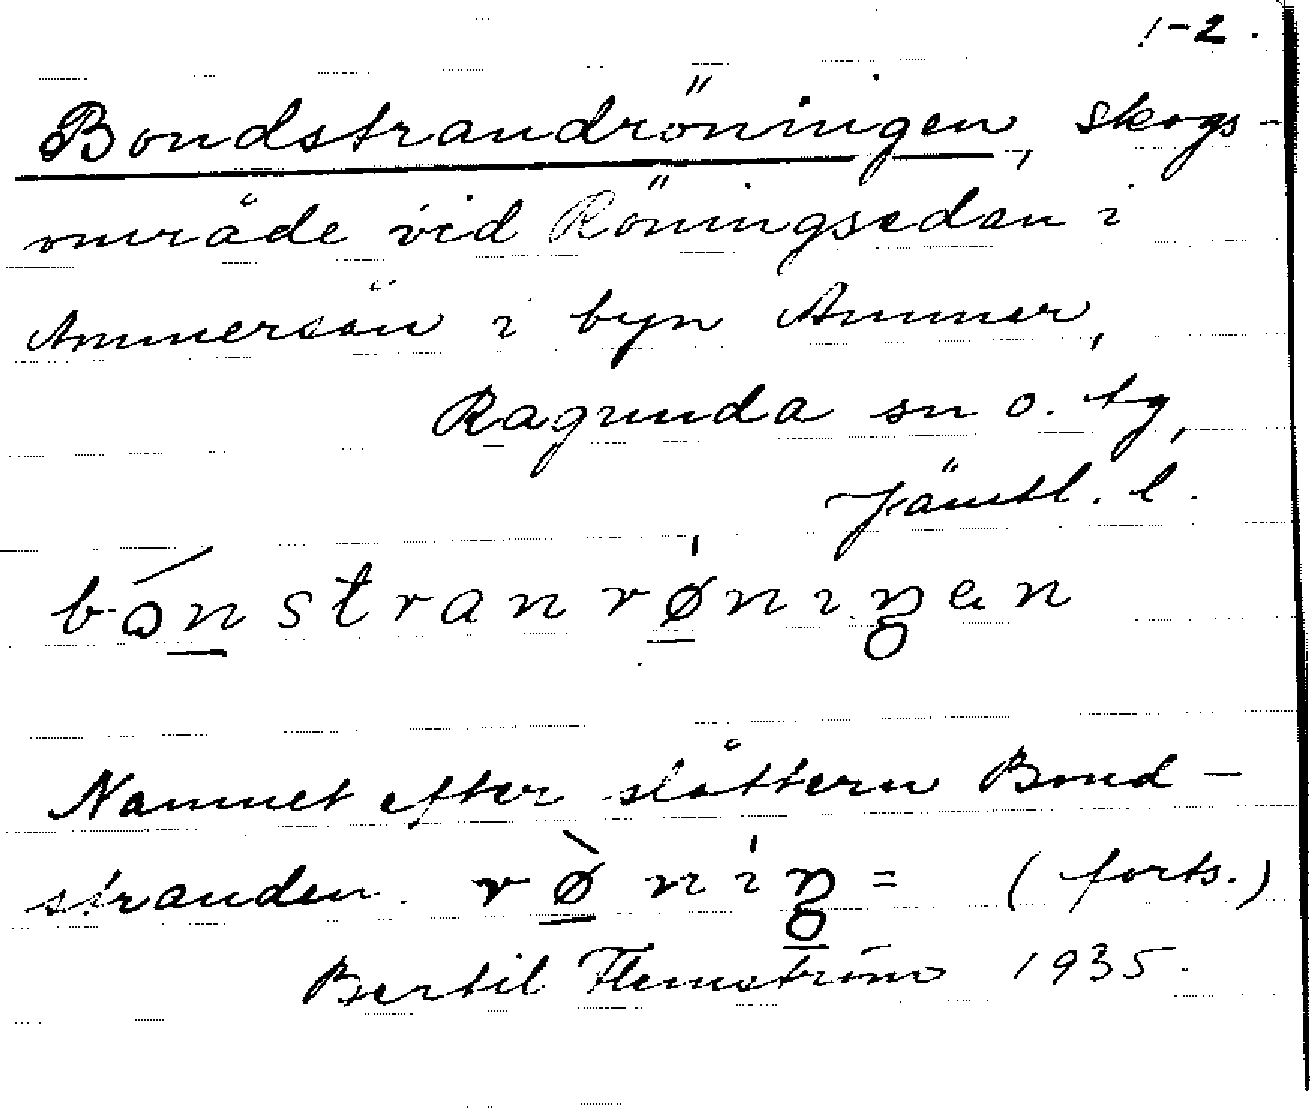 1-2.
Bondstrandröningen, skogs-
område vid Röningsedan i
Ammerån i byn Ammer,
Ragunda sn o. tg,
Jämtl. l.
bónstranrøniŋen
Namnet efter slåttern Bond-
stranden. rø̀niŋ = (forts.)
Bertil Flemström 1935.